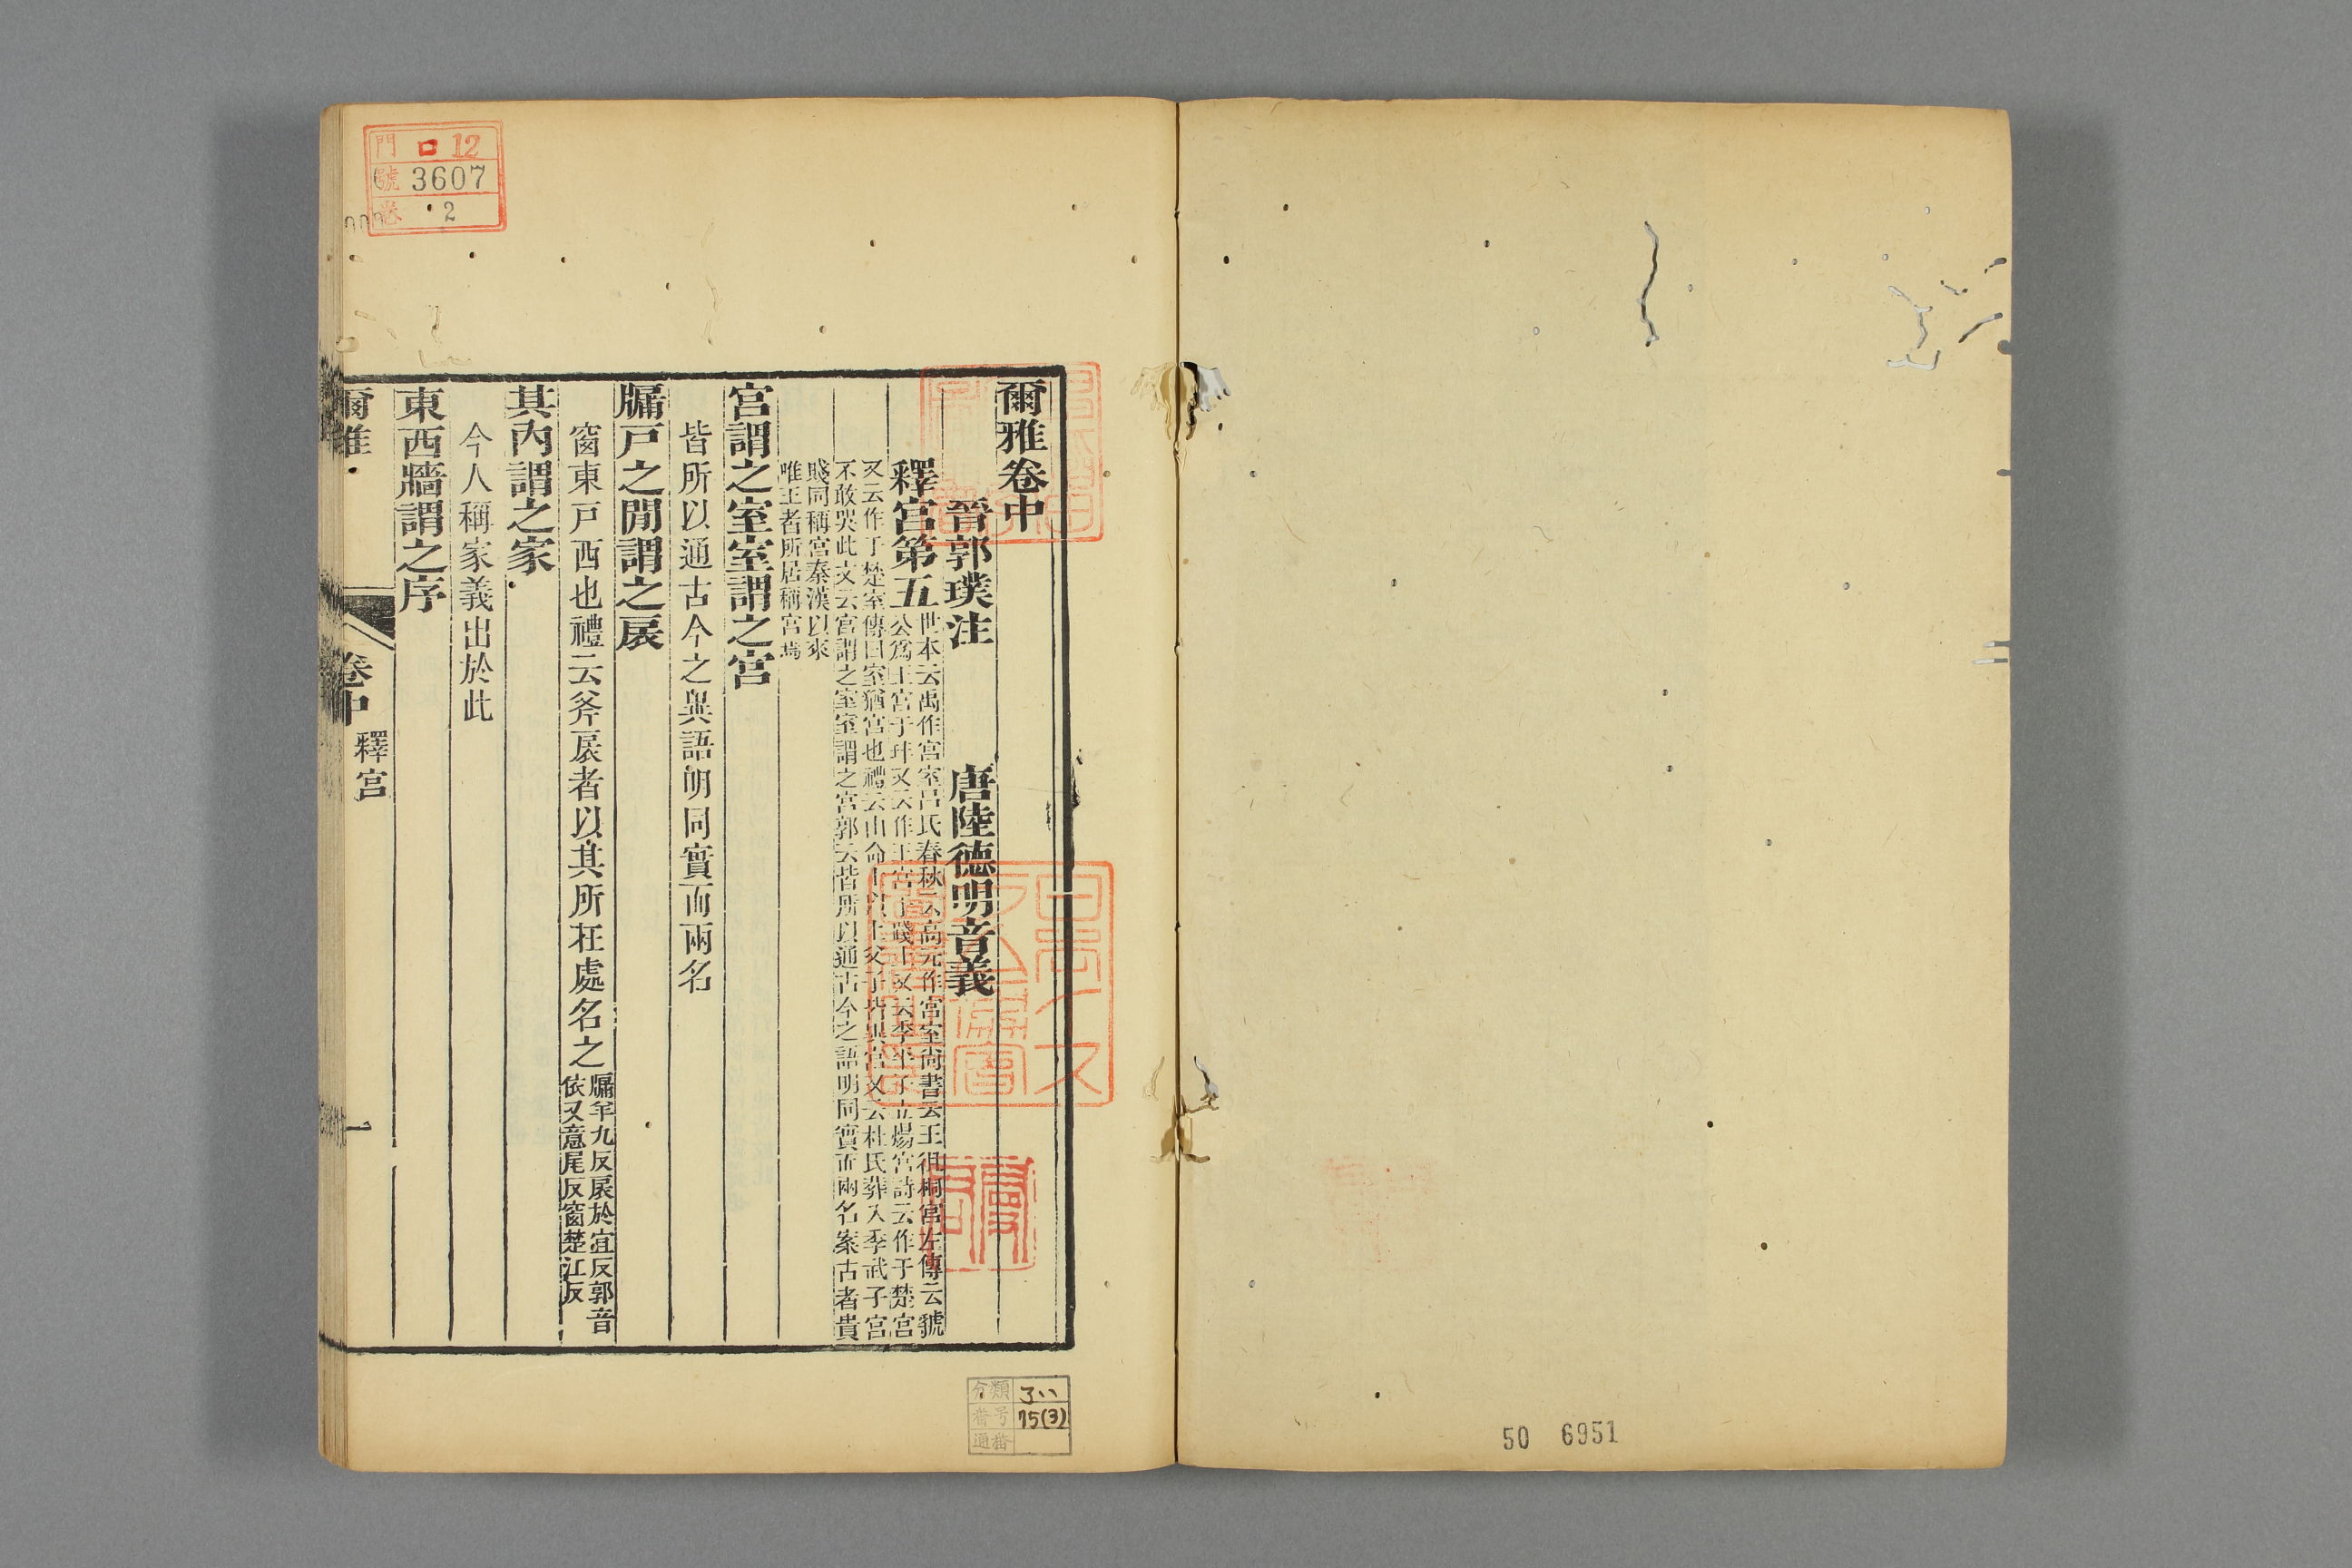 爾雅卷中
晉郭璞注　唐陸德明音義
釋宮第五
世本云禹作宮室呂氏春秋云高元作宮室尚書云王徂桐宮左傳云虢
公爲王宮于玤又云作王宮于踐土又云季平子立煬宮詩云作于楚宮
又云作于楚室傳曰室猶宮也禮云由命士以上父子皆異宮又云杜氏葬入季武子宮
不敢哭此文云宮謂之室室謂之宮郭云皆所以通古今之語明同實而兩名案古者貴
賤同稱宮秦漢以來
唯王者所居稱宮焉
宮謂之室室謂之宮
皆所以通古今之異語明同實而兩名
牖戸之閒謂之扆
窗東戸西也禮云斧扆者以其所在處名之
牖羊九反扆於宜反郭音
依又意尾反窗楚江反
其內謂之家
今人稱家義出於此
東西牆謂之序
爾雅　卷中　釋宮　一
門 口 12
號 3607
卷 2
分類
番号 75(3)
通番
50 6951